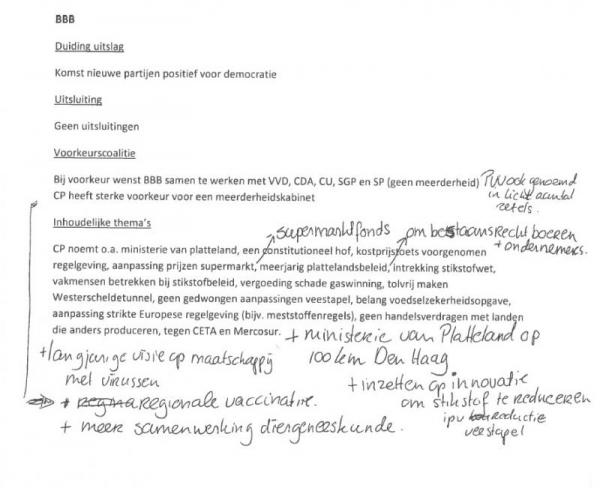 BBB
Duiding uitslag
Komst nieuwe partijen positief voor democratie
Uitsluiting
Geen uitsluitingen
Voorkeurscoalitie
Bij voorkeur wenst BBB samen te werken met VVD, CDA, CU, SGP en SP (geen meerderheid) PVV ook genoemd
in licht aantal
zetels.
CP heeft sterke voorkeur voor een meerderheidskabinet
Inhoudelijke thema's
supermarktfonds
om bestaansrecht boeren
+ ondernemers.
CP noemt o.a. ministerie van platteland, een constitutioneel hof, kostprijstoets voorgenomen
regelgeving, aanpassing prijzen supermarkt, meerjarig plattelandsbeleid, intrekking stikstofwet,
vakmensen betrekken bij stikstofbeleid, vergoeding schade gaswinning, tolvrij maken
Westerscheldetunnel, geen gedwongen aanpassingen veestapel, belang voedselzekerheidsopgave,
aanpassing strikte Europese regelgeving (bijv. meststoffenregels), geen handelsverdragen met landen
die anders produceren, tegen CETA en Mercosur. + ministerie van Platteland op
100 km Den Haag
+ langjarige visie op maatschappij
met virussen
+ regionale vaccinatie.
+ meer samenwerking diergeneeskunde.
+ inzetten op innovatie
om stikstof te reduceren
ipv reductie
veestapel